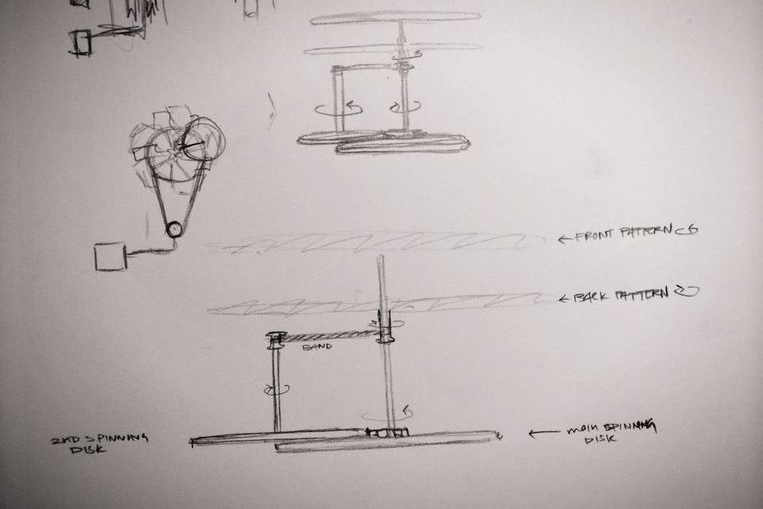 ← FRONT PATTERN
← BACK PATTERN
BAND
2ND SPINNING
DISK
← MAIN SPINNING
DISK